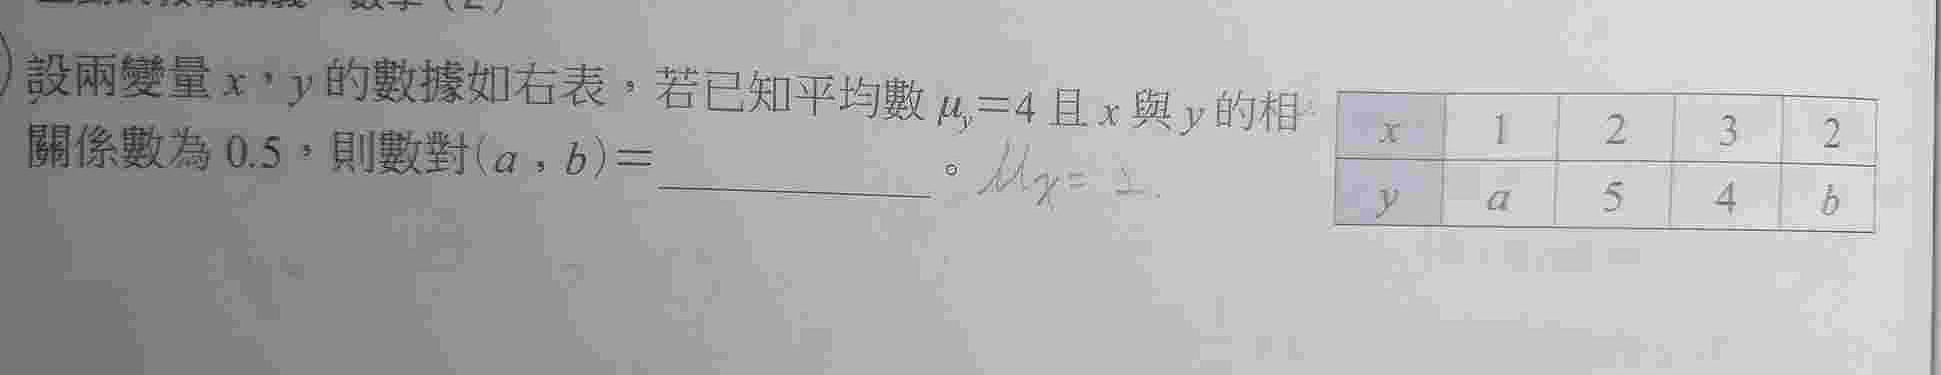 設兩變量 x，y 的數據如右表，若已知平均數 μy=4 且 x 與 y 的相
關係數為 0.5，則數對(a，b)=＿＿＿＿。 μx=2.
x 1 2 3 2
y a 5 4 b